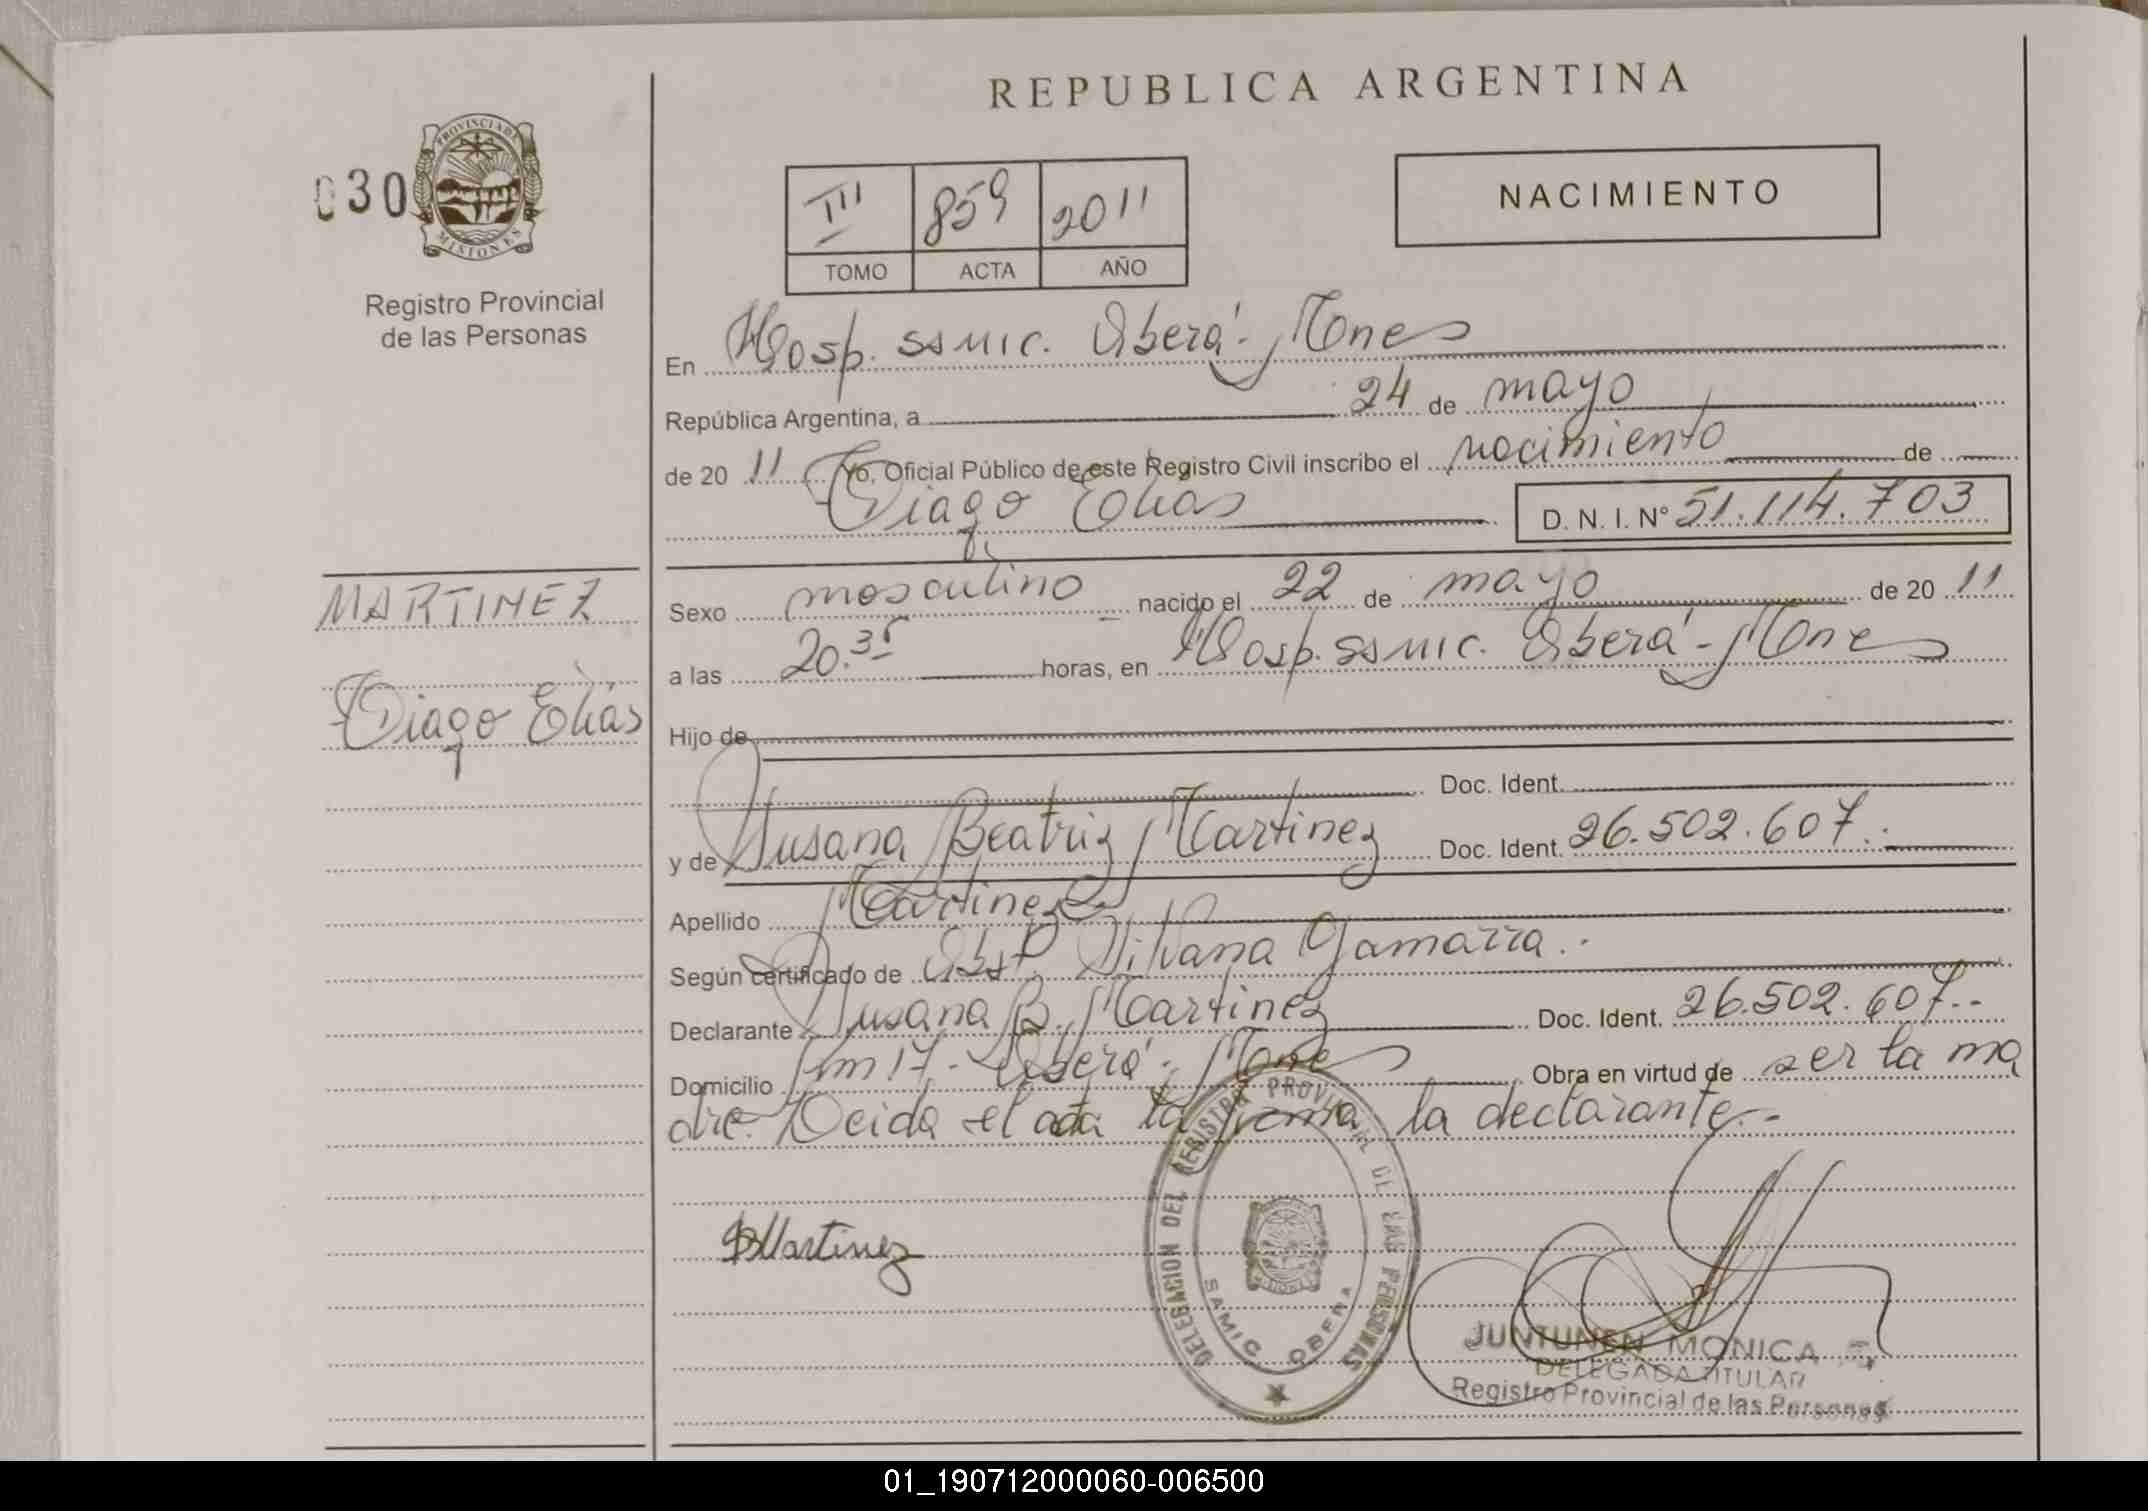 REPUBLICA ARGENTINA
030
PROVINCIA DE
MISIONES
Registro Provincial
de las Personas
III 859 2011
TOMO ACTA AÑO
NACIMIENTO
En Hosp. SSMIC. Oberá - Mnes
República Argentina, a 24 de mayo
de 20 11 Yo, Oficial Público de este Registro Civil inscribo el nacimiento de
Tiago Elías D. N. I. N° 51.114.703
MARTINEZ
Tiago Elías
Sexo masculino nacido el 22 de mayo de 20 11
a las 20.35 horas, en Hosp. SSMIC. Oberá - Mnes
Hijo de
Doc. Ident.
y de Susana Beatriz Martinez Doc. Ident. 26.502.607.
Apellido Martinez
Según certificado de Obst. Silvana Gamarra.
Declarante Susana B. Martinez Doc. Ident. 26.502.607.-
Domicilio Km 17 - Oberá - Mnes Obra en virtud de ser la ma
dre. Leida el acta la firma la declarante.-
SBMartinez
DELEGACION DEL REGISTRO PROVINCIAL DE LAS PERSONAS
SAMIC OBERA
JUNTUNEN MONICA
DELEGADA TITULAR
Registro Provincial de las Personas
01_190712000060-006500